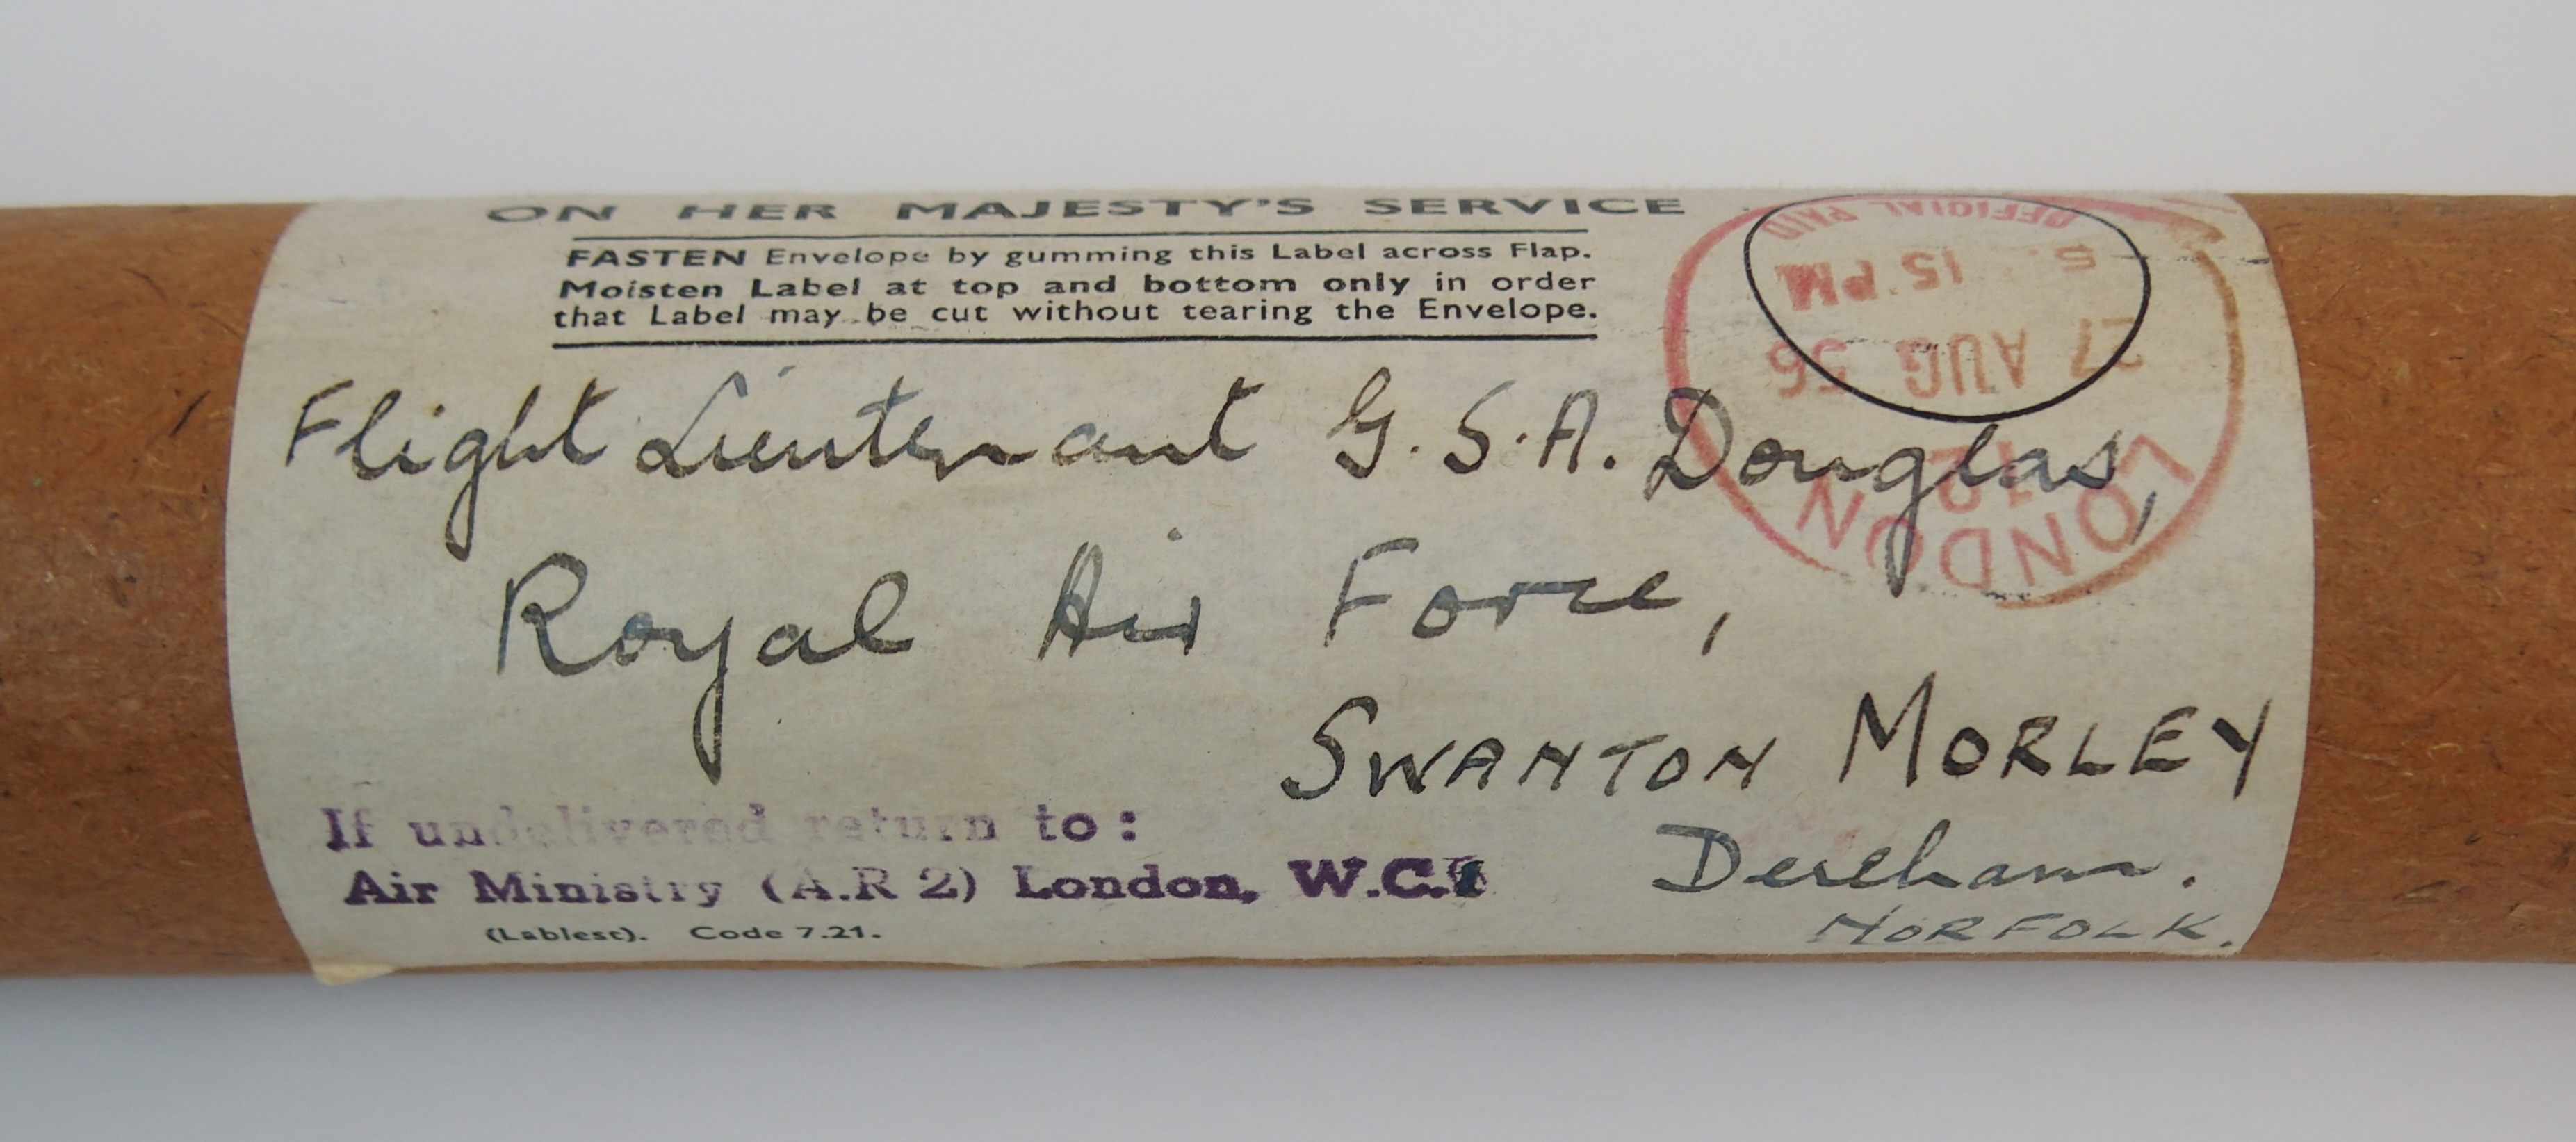 ON HER MAJESTY'S SERVICE
FASTEN Envelope by gumming this Label across Flap.
Moisten Label at top and bottom only in order
that Label may be cut without tearing the Envelope.
OFFICIAL PAID
5. 15 PM
27 AUG 56
12
LONDON
Flight Lieutenant G.S.A. Douglas,
Royal Air Force,
SWANTON MORLEY
Dereham.
NORFOLK.
If undelivered return to:
Air Ministry (A.R 2) London, W.C.1
(Lablest). Code 7.21.